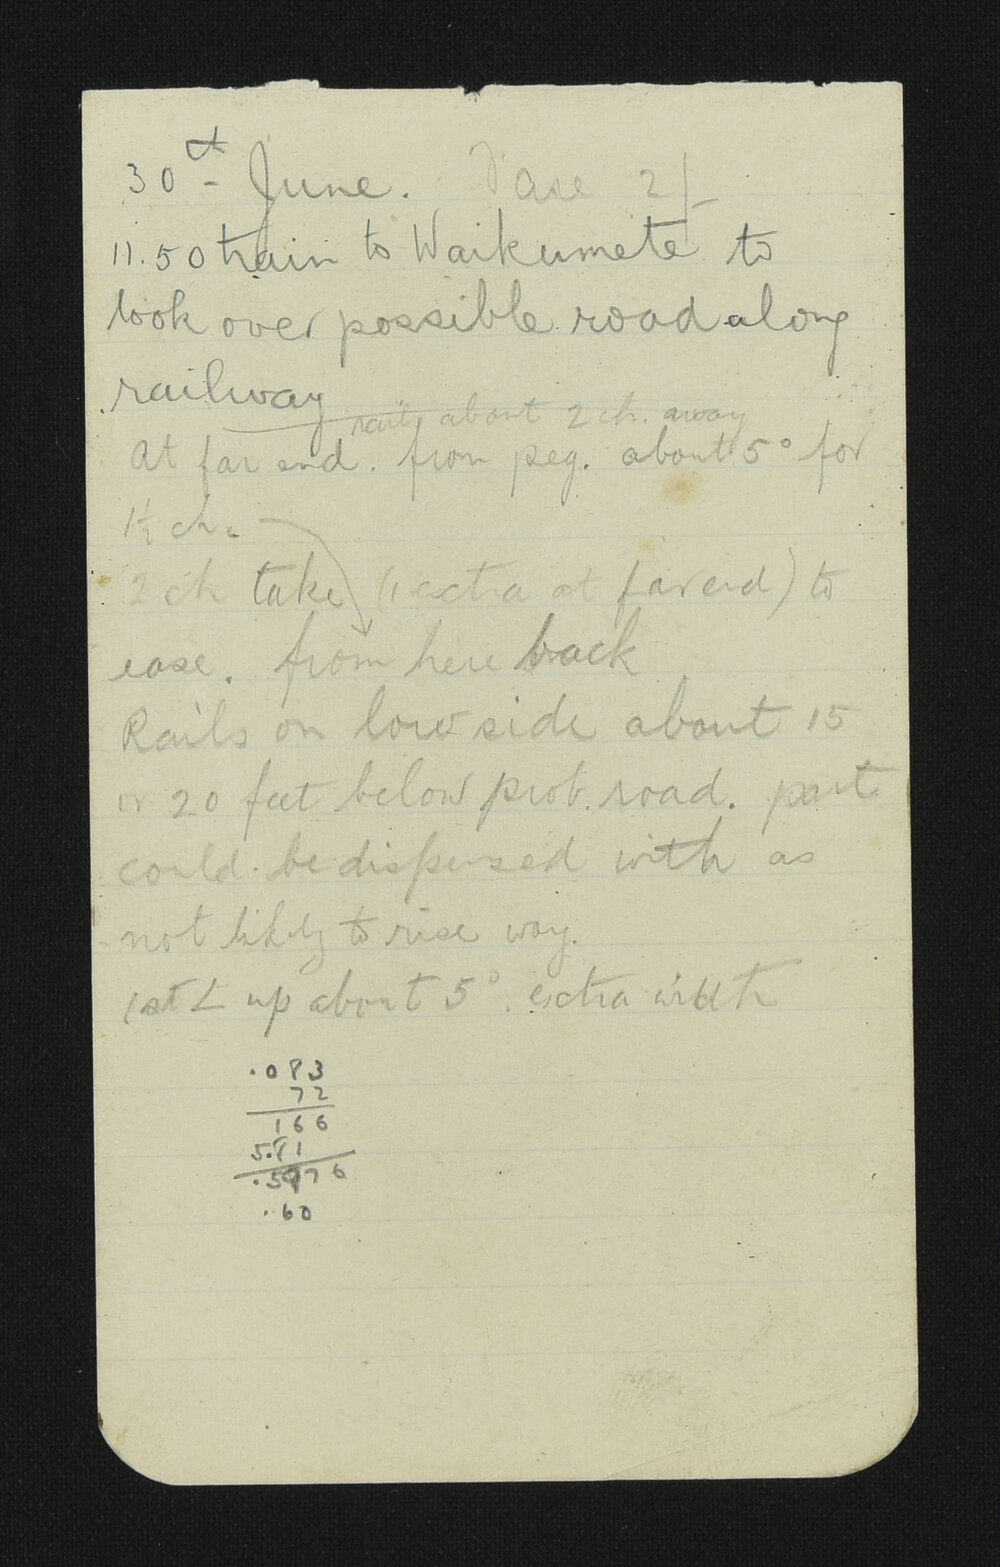 30th June. Fare 2/-
11.50 train to Waikumete to
look over possible road along
railway
rails about 2 ch. away
At far end. from peg. about 5° for
1½ ch.
2 ch take (1 extra at far end) to
ease. from here back
Rails on low side about 15
or 20 feet below prob. road. part
could be dispensed with as
not likely to rise way.
1st L up about 5°. extra width
.083
72
166
5.81
.5976
.60